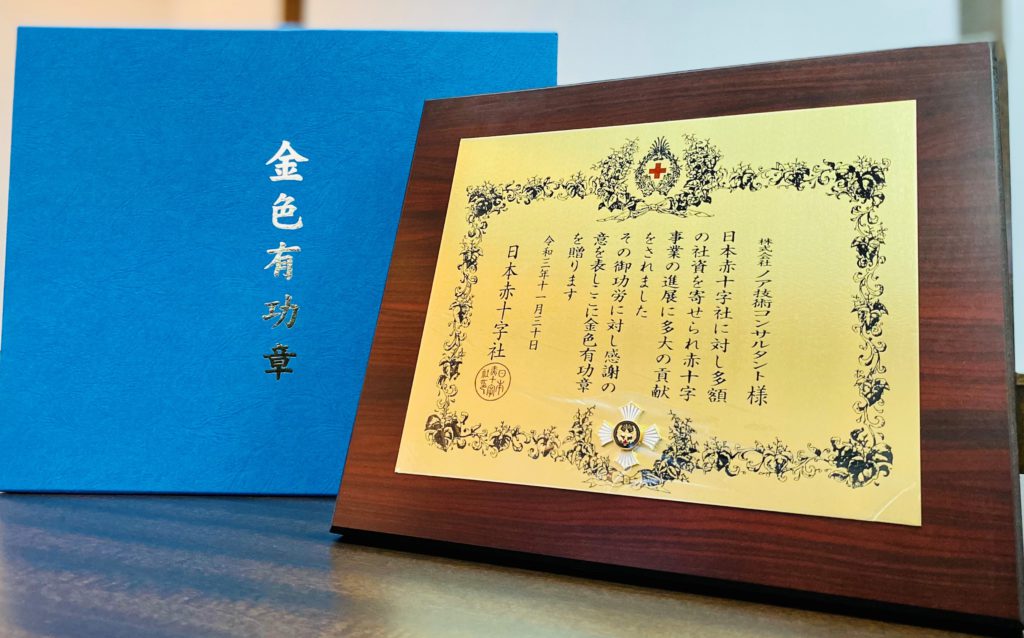 金色有功章
株式会社ノア技術コンサルタント様
日本赤十字社に対し多額
の社資を寄せられ赤十字
事業の進展に多大の貢献
をされました
その御功労に対し感謝の
意を表しここに金色有功章
を贈ります
令和三年十一月三十日
日本赤十字社